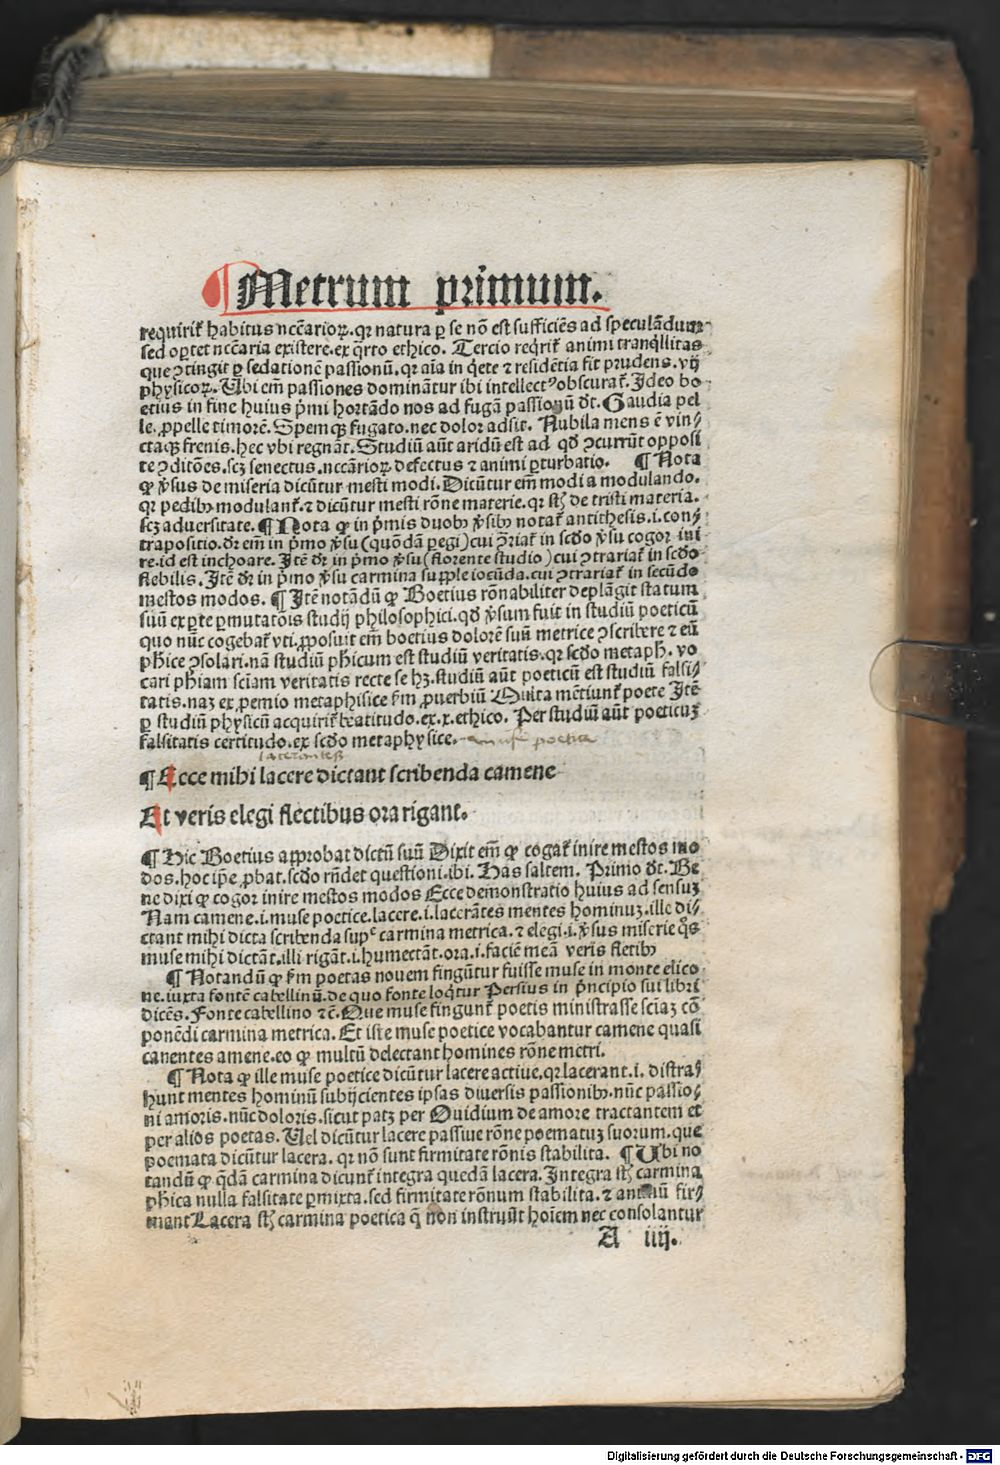 ¶ Metrum primum.
requirit̃ habitus nc̃carioꝝ.qꝛ natura ꝑ se nõ est sufficiẽs ad speculãdum
sed oꝑtet nc̃caria existere.ex q̃rto ethico. Tercio reqͥrit̃ animi tranqͥllitas
que ꝯtingit ꝑ sedationẽ passionũ.qꝛ aĩa in qͥete ⁊ residẽtia fit prudens.vij
phẏsicoꝝ.Ubi em̃ passiones dominãtur ibi intellectꝰ obscurat̃.Ideo bo
etius in fine huius pͥmi hortãdo nos ad fugã passionũ dt̃.Gaudia pel
le.ꝓpelle timorẽ.Spemqꝫ fugato.nec dolor adsit. Nubila mens ẽ vin⸗
ctaqꝫ frenis.hec vbi regnãt.Studiũ aũt aridũ est ad qd̃ ꝯcurrũt opposi
te ꝯditões.scꝫ senectus.nc̃carioꝝ defectus ⁊ animi ꝑturbatio. ¶ Nota
ꝙ ṽsus de miseria dicũtur mesti modi.Dicũtur em̃ modi a modulando.
qꝛ pedibꝰ modulant̃.⁊ dicũtur mesti rõne materie.qꝛ st̃ de tristi materia.
scꝫ aduersitate.¶ Nota ꝙ in pͥmis duobꝰ ṽsibꝰ notat̃ antithesis.i.con⸗
trapositio.dr̃ em̃ in pͥmo ṽsu (quõdã ꝑegi) cui ꝯtriat̃ in scd̃o ṽsu cogor ini
re.id est inchoare. Itẽ dr̃ in pͥmo ṽsu (florente studio) cui ꝯtrariat̃ in scd̃o
flebilis. Itẽ dr̃ in pͥmo ṽsu carmina supple iocũda.cui ꝯtrariat̃ in secũdo
mestos modos. ¶ Itẽ notãdũ ꝙ Boetius rõnabiliter deplãgit statum
suũ ex ꝑte ꝑmutatõis studij philosophici.qd̃ ṽsum fuit in studiũ poeticũ
quo nũc cogebat̃ vti.ꝓposuit em̃ boetius dolorẽ suũ metrice ꝯscribere ⁊ eũ
ph̃ice ꝯsolari.nã studiũ ph̃icum est studiũ veritatis.qꝛ scd̃o metaph̃. vo
cari ph̃iam sciam veritatis recte se hꝫ.studiũ aũt poeticũ est studiũ falsi⸗
tatis.naꝫ ex ꝓemio metaphisice ẜm ꝓuerbiũ Multa mẽtiunt̃ poete Itẽ
ꝑ studiũ phẏsicũ acquirit̃ beatitudo.ex.x.ethico. Per studiũ aũt poeticuꝫ
falsitatis certitudo.ex scd̃o metaphẏsice. muse poetice
lacerantes
¶ Ecce mihi lacere dictant scribenda camene
Et veris elegi flectibus ora rigant.
¶ Hic Boetius approbat dictũ suũ Dixit em̃ ꝙ cogat̃ inire mestos mo
dos.hoc ip̃e ꝓbat.scd̃o rñdet questioni.ibi. Has saltem. Primo dt̃. Be
ne dixi ꝙ cogor inire mestos modos Ecce demonstratio huius ad sensuꝫ
Nam camene.i.muse poetice.lacere.i.lacerãtes mentes hominuꝫ.ille di⸗
ctant mihi dicta scribenda supͤ carmina metrica.⁊ elegi.i.ṽsus miserie q̊s
muse mihi dictãt.illi rigãt.i.humectãt.ora.i.faciẽ meã veris fletibꝰ
¶ Notandũ ꝙ ẜm poetas nouem fingũtur fuisse muse in monte elico
ne.iuxta fontẽ cabellinũ.de quo fonte loqͥtur Persius in pͥncipio sui libri
dicẽs.Fonte cabellino ⁊c̃.Que muse fingunt̃ poetis ministrasse sciaꝫ cõ
ponẽdi carmina metrica. Et iste muse poetice vocabantur camene quasi
canentes amene.eo ꝙ multũ delectant homines rõne metri.
¶ Nota ꝙ ille muse poetice dicũtur lacere actiue.qꝛ lacerant.i. distra⸗
hunt mentes hominũ subijcientes ipsas diuersis passionibꝰ.nũc passio⸗
ni amoris.nũc doloris.sicut patꝫ per Ouidium de amore tractantem et
per alios poetas. Uel dicũtur lacere passiue rõne poematuꝫ suorum.que
poemata dicũtur lacera. qꝛ nõ sunt firmitate rõnis stabilita. ¶ Ubi no
tandũ ꝙ q̃dã carmina dicunt̃ integra quedã lacera. Integra st̃ carmina
ph̃ica nulla falsitate ꝑmixta.sed firmitate rõnum stabilita.⁊ animũ fir⸗
mant Lacera st̃ carmina poetica q̃ non instruũt hoĩem nec consolantur
A iiij.
Digitalisierung gefördert durch die Deutsche Forschungsgemeinschaft - DFG